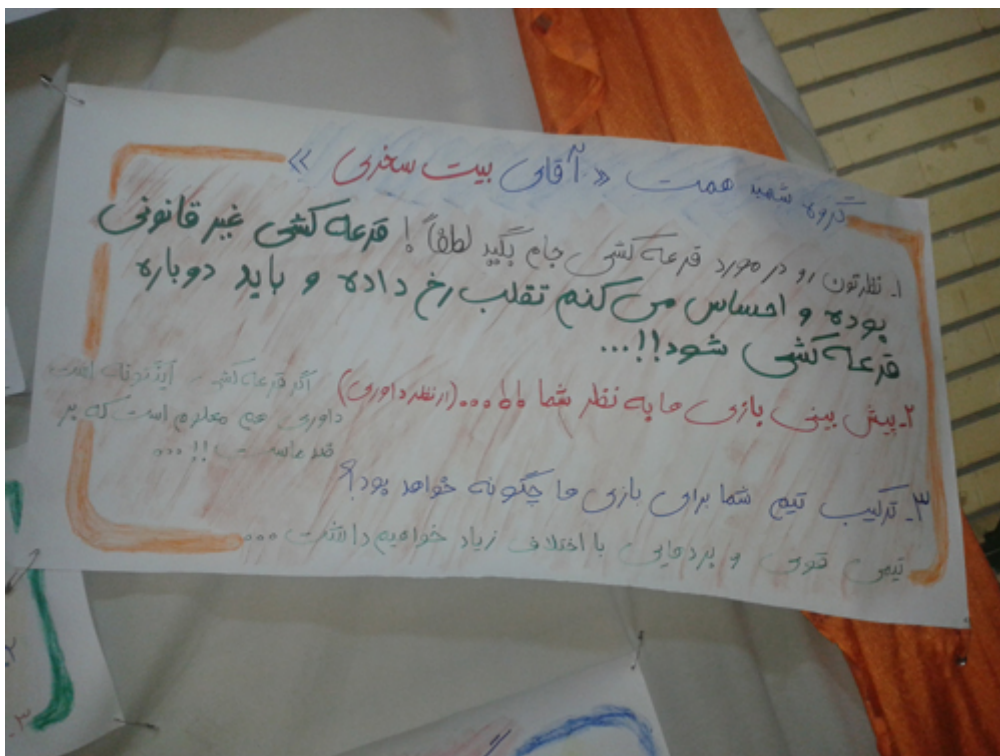 گروه شهید همت « آقای بیت سخری »
۱. نظرتون رو در مورد قرعه کشی جام بگید لطفاً! قرعه کشی غیر قانونی
بوده و احساس می کنم تقلب رخ داده و باید دوباره
قرعه کشی شود!!...
۲. پیش بینی بازی ما به نظر شما ... (از نظر داوری)
اگر قرعه کشی اینگونه است
داوری هم معلوم است که بر
ضد ماست!!...
۳. ترکیب تیم شما برای بازی ما چگونه خواهد بود؟
تیمی قوی و بردهایی با اختلاف زیاد خواهیم داشت...